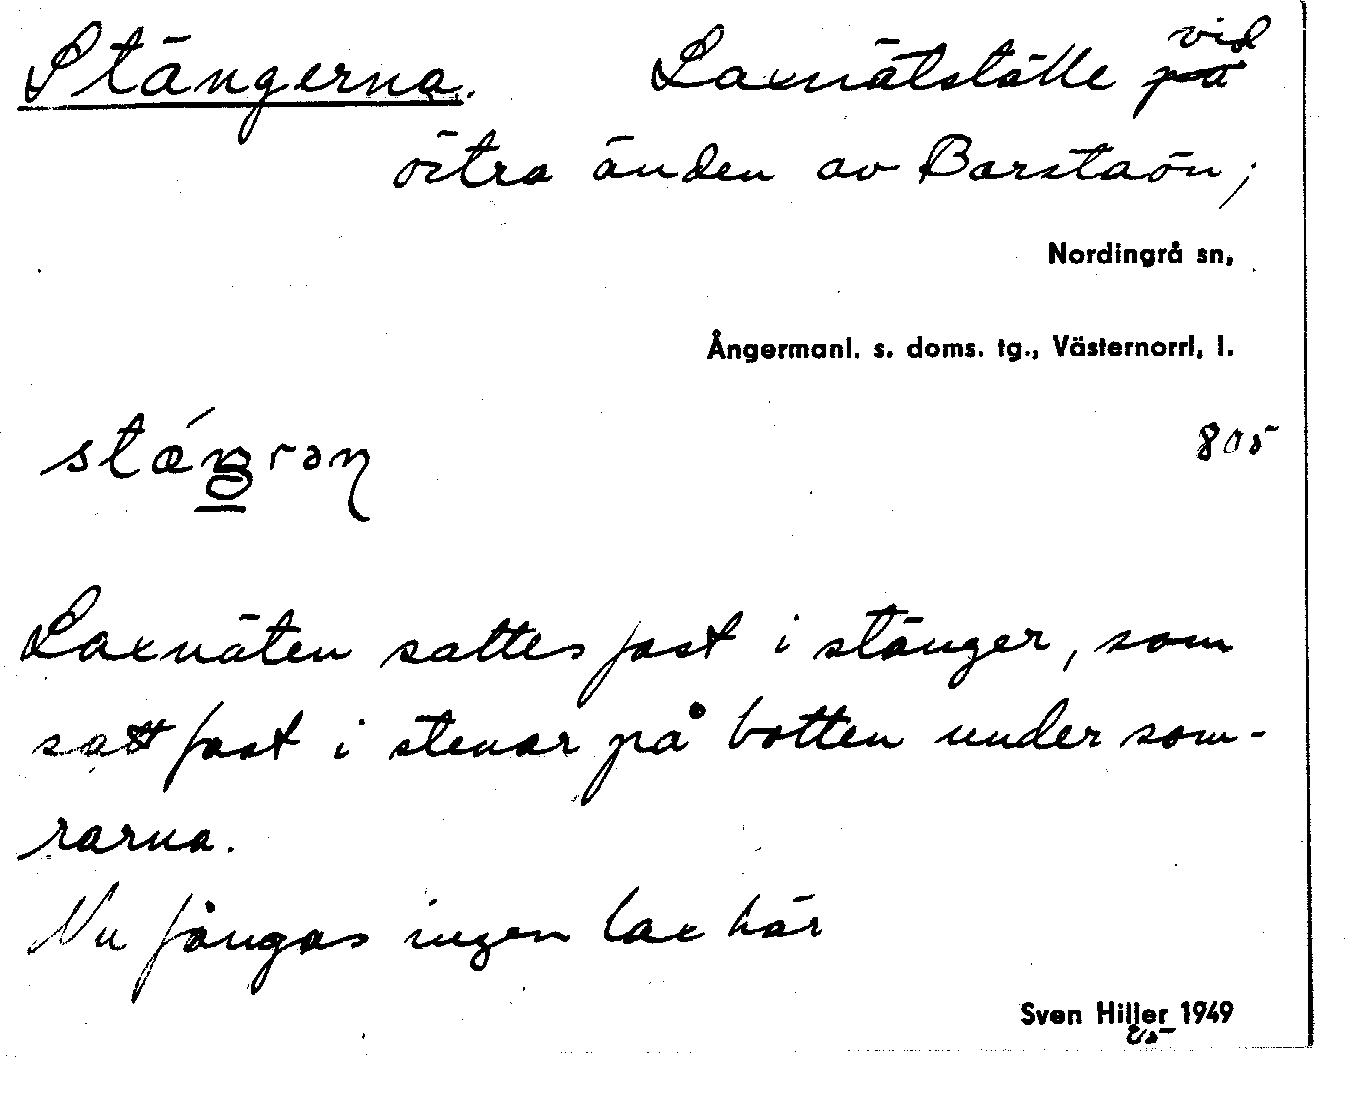 Stängerna. Laxnätställe på vid
östra änden av Barstaön;
Nordingrå sn,
Ångermanl. s. doms. tg., Västernorrl. l.
805
Laxnäten sattes fast i stänger, som
satt fast i stenar på botten under som-
rarna.
Nu fångas ingen lax här
Sven Hiller 1949